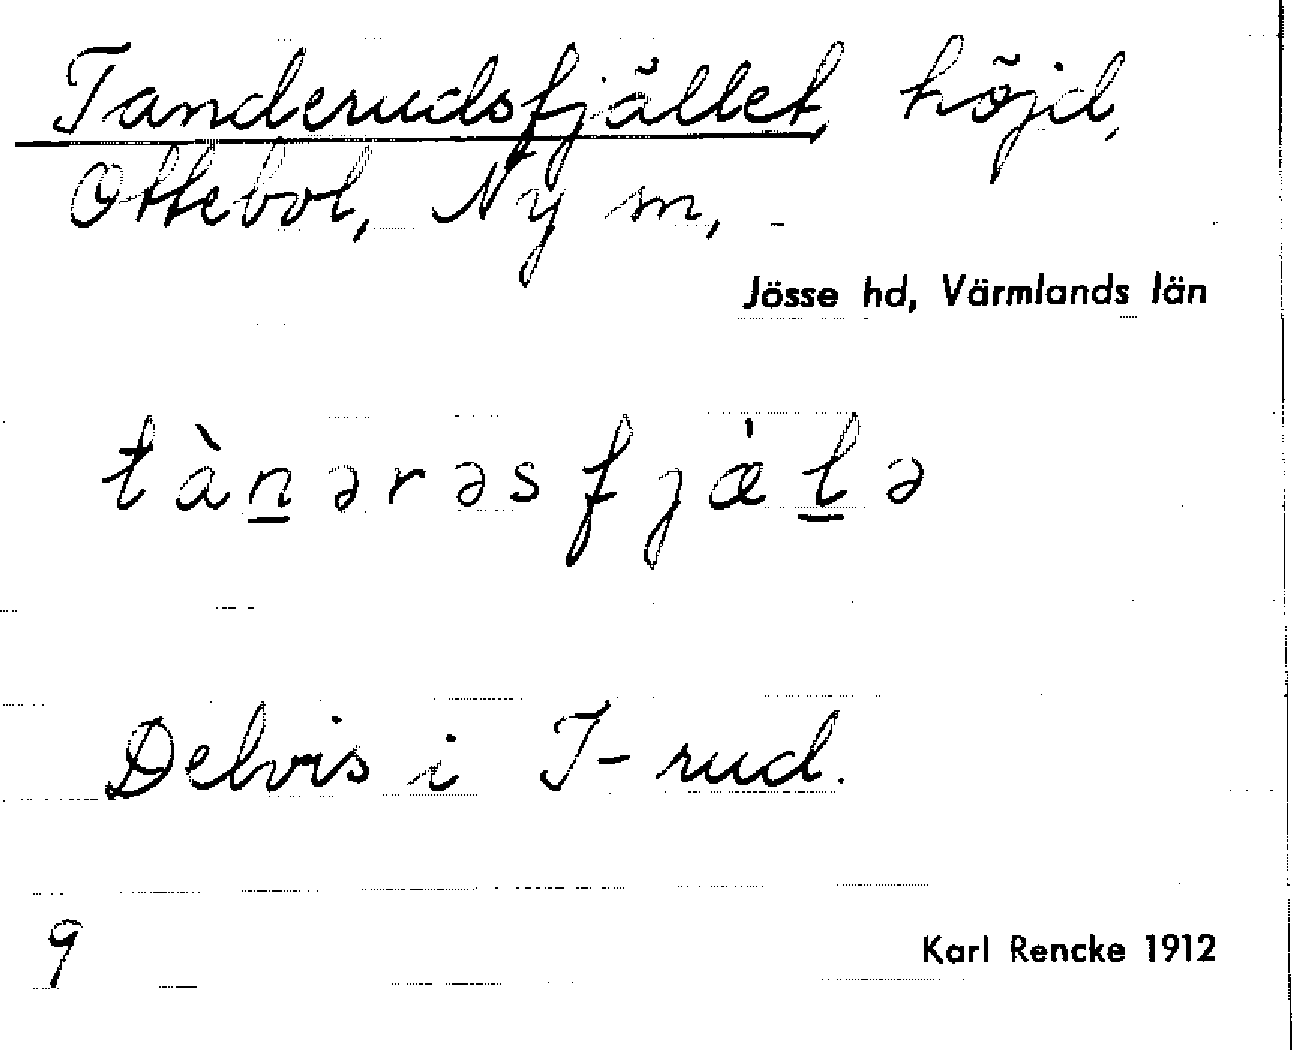 Tanderudsfjället, höjd,
Ottebol, Ny sn,
Jösse hd, Värmlands län
tàn̲ərəsfjæ̍l̲ə
Delvis i T-rud.
9
Karl Rencke 1912